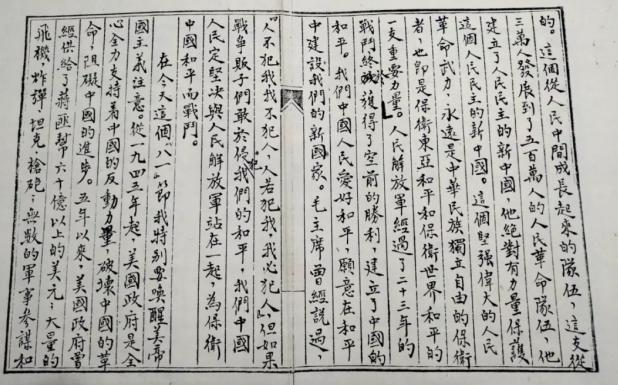 的。這個從人民中間成長起來的隊伍，這支從
三萬人發展到了五百萬人的人民革命隊伍，他
建立了人民民主的新中國，他絕對有力量保護
這個人民民主的新中國。這個堅强偉大的人民
革命武力，永遠是中華民族獨立自由的保衛
者，也即是保衛東亞和平和保衛世界和平的
一支重要力量。人民解放軍經過了二十三年的
戰鬥，終於獲得了空前的勝利，建立了中國的
和平。我們中國人民愛好和平，願意在和平
中建設我們的新國家。毛主席曾經説過，
“人不犯我，我不犯人，人若犯我，我必犯人”但如果
戰爭販子們敢於侵我們的和平，我們中國
人民定堅决與人民解放軍站在一起，為保衛
中國和平而戰鬥。
在今天這個“八一”節我特别要唤醒美帝
國主義注意。從一九四五年起，美國政府是全
心全力支持着中國的反動力量，破壞中國的革
命，阻礙中國的進步。五年以來，美國政府曾
經供給了蔣匪幫六十億以上的美元，大量的
飛機、炸彈、坦克、槍砲；無數的軍事參謀和